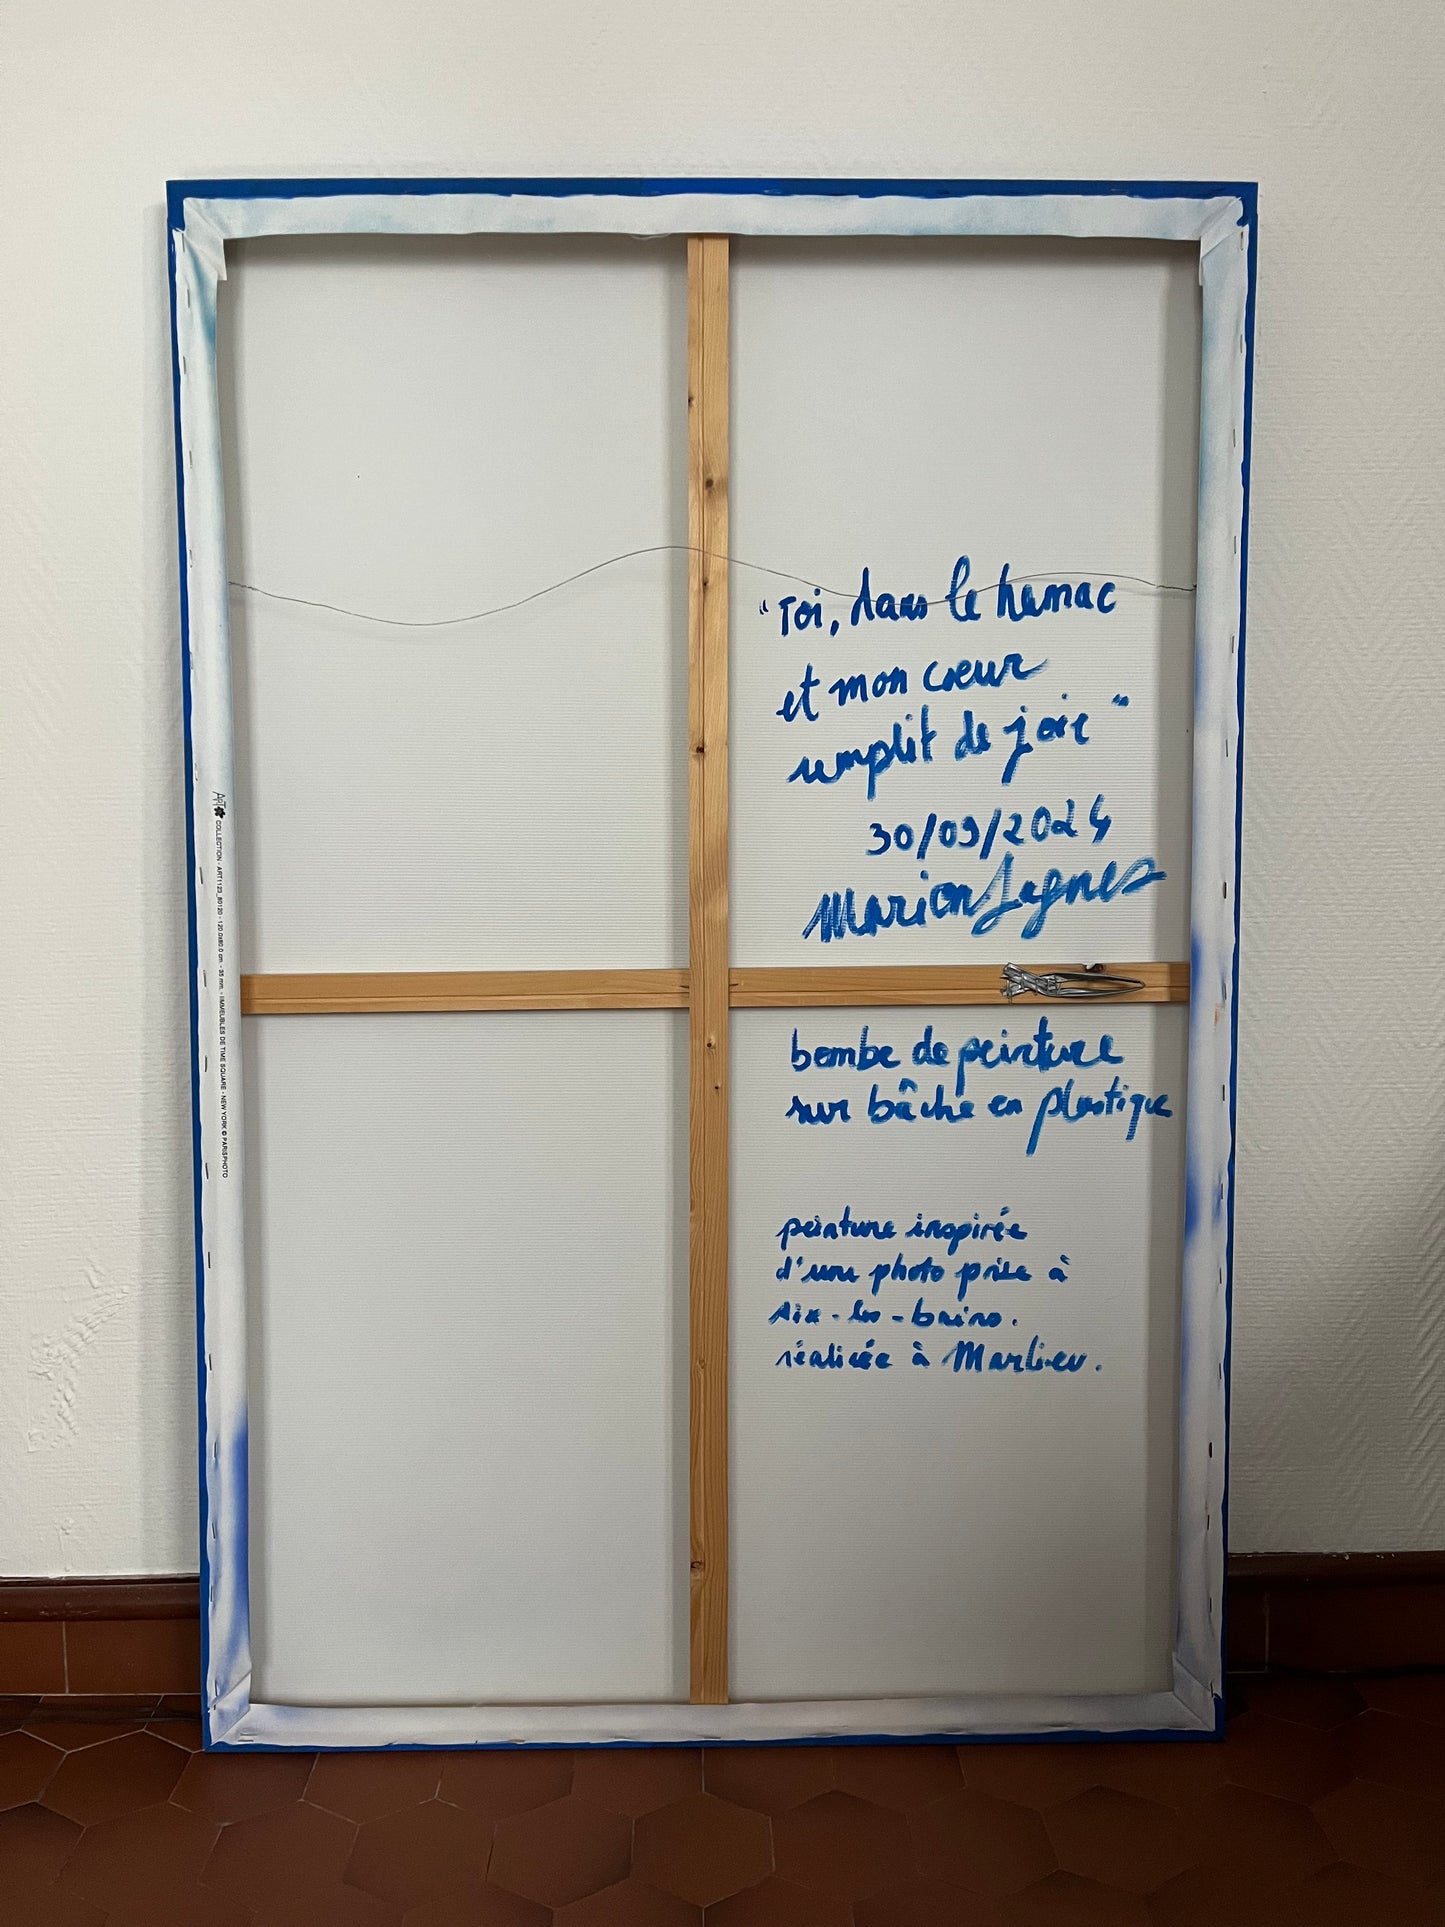 "Toi, dans le hamac
et mon cœur
remplit de joie"
30/09/2024
Marion
bombe de peinture
sur bâche en plastique
peinture inspirée
d'une photo prise à
Aix-les-bains.
réalisée à Marlieu.
ART COLLECTION - ART1123_80120 - 120.0x80.0 cm. - 35 mm. - IMMEUBLES DE TIME SQUARE - NEW YORK © PARISPHOTO